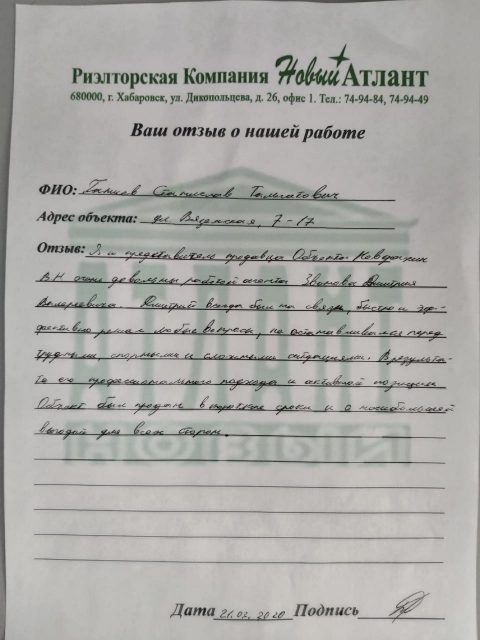 Риэлторская Компания Новый Атлант
680000, г. Хабаровск, ул. Дикопольцева, д. 26, офис 1. Тел.: 74-94-84, 74-94-49
Ваш отзыв о нашей работе
ФИО: Ганиев Станислав Талгатович
Адрес объекта: ул Вяземская, 7-17
Отзыв: Я и представитель продавца Объекта
В.Н очень довольны работой агента Звонова Дмитрия
Валерьевича. Дмитрий всегда был на связи, быстро и эф-
фективно решал любые вопросы, не останавливался перед
трудными, спорными и сложными ситуациями. В результа-
те его профессионального подхода и активной позиции
Объект был продан в короткие сроки и с наибольшей
выгодой для всех сторон.
АТЛАНТ
НОВЫЙ
Дата 21.02.2020 Подпись